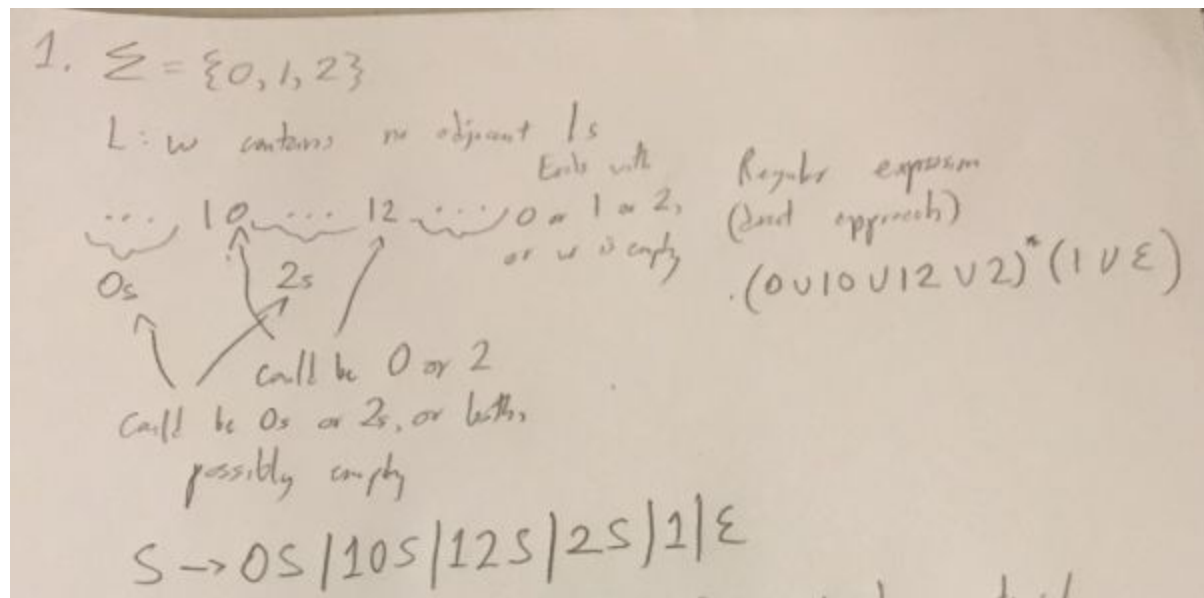 1. Σ = {0, 1, 2}
L: w contains no adjacent 1s
Ends with
... 10 ... 12 ... 0 or 1 or 2,
or w is empty
0s 2s
could be 0 or 2
could be 0s or 2s, or both,
possibly empty
Regular expression
(direct approach)
(0 ∪ 10 ∪ 12 ∪ 2)* (1 ∪ ε)
S → 0S | 10S | 12S | 2S | 1 | ε